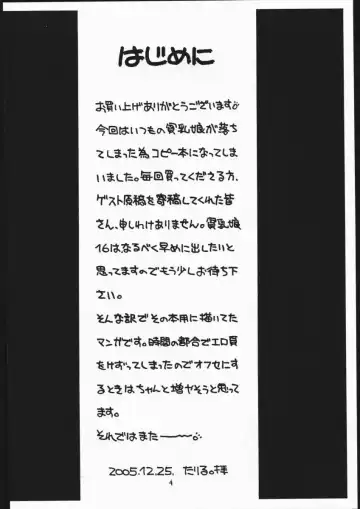 はじめに
お買い上げありがとうございます。
今回はいつもの貧乳娘が落ち
てしまった為コピー本になってしま
いました。毎回買ってくださる方、
ゲスト原稿を寄稿してくれた皆
さん、申しわけありません。貧乳娘
16はなるべく早めに出したいと
思ってますのでもう少しお待ち下
さい。
そんな訳でその本用に描いてた
マンガです。時間の都合でエロ頁
をけずってしまったのでオフセにす
るときはちゃんと増ヤそうと思って
ます。
それではまた―――。
2005.12.25. だりる。拝
4